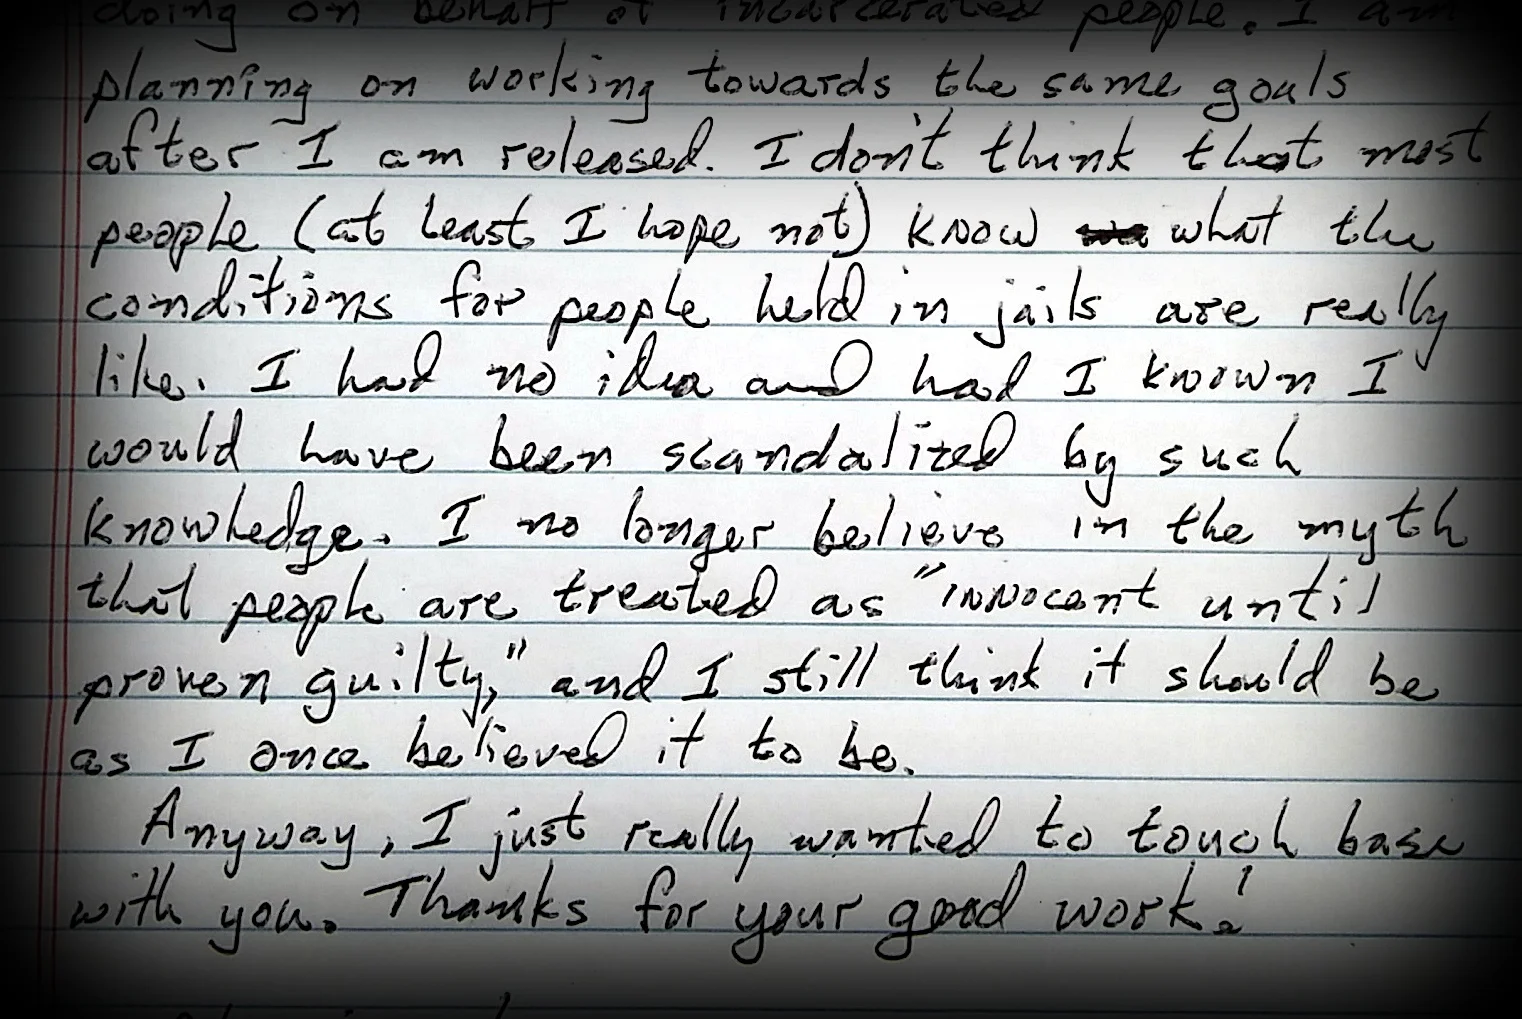 doing on behalf of incarcerated people. I am
planning on working towards the same goals
after I am released. I don't think that most
people (at least I hope not) know what the
conditions for people held in jails are really
like. I had no idea and had I known I
would have been scandalized by such
knowledge. I no longer believe in the myth
that people are treated as "innocent until
proven guilty," and I still think it should be
as I once believed it to be.
Anyway, I just really wanted to touch base
with you. Thanks for your good work!